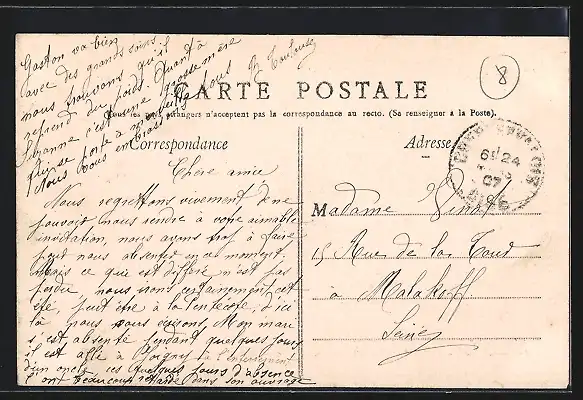 Gaston va bien
avec des grands soins
nous trouvons qu'il
reprend du poids. Quant à
Suzanne c'est une grosse mère
qui se porte à merveille
Nous vous embrassons tous
CARTE POSTALE
Tous les pays étrangers n'acceptent pas la correspondance au recto. (Se renseigner à la Poste).
Correspondance
Adresse
8
6 24
07
Chère amie
Nous regrettons vivement de ne
pouvoir nous rendre à votre aimable
invitation, nous avons trop à faire
pour nous absenter en ce moment.
Mais ce qui est différé n'est pas
perdu, nous irons certainement cet
été, peut être à la Pentecôte, d'ici
là nous vous écrirons, Mon mari
s'est absenté pendant quelques jours
il est allé à à l'enterrement
d'un oncle, ces quelques jours d'absence
l'ont beaucoup retardé dans son ouvrage
Madame
15 Rue de la Tour
à Malakoff
Seine